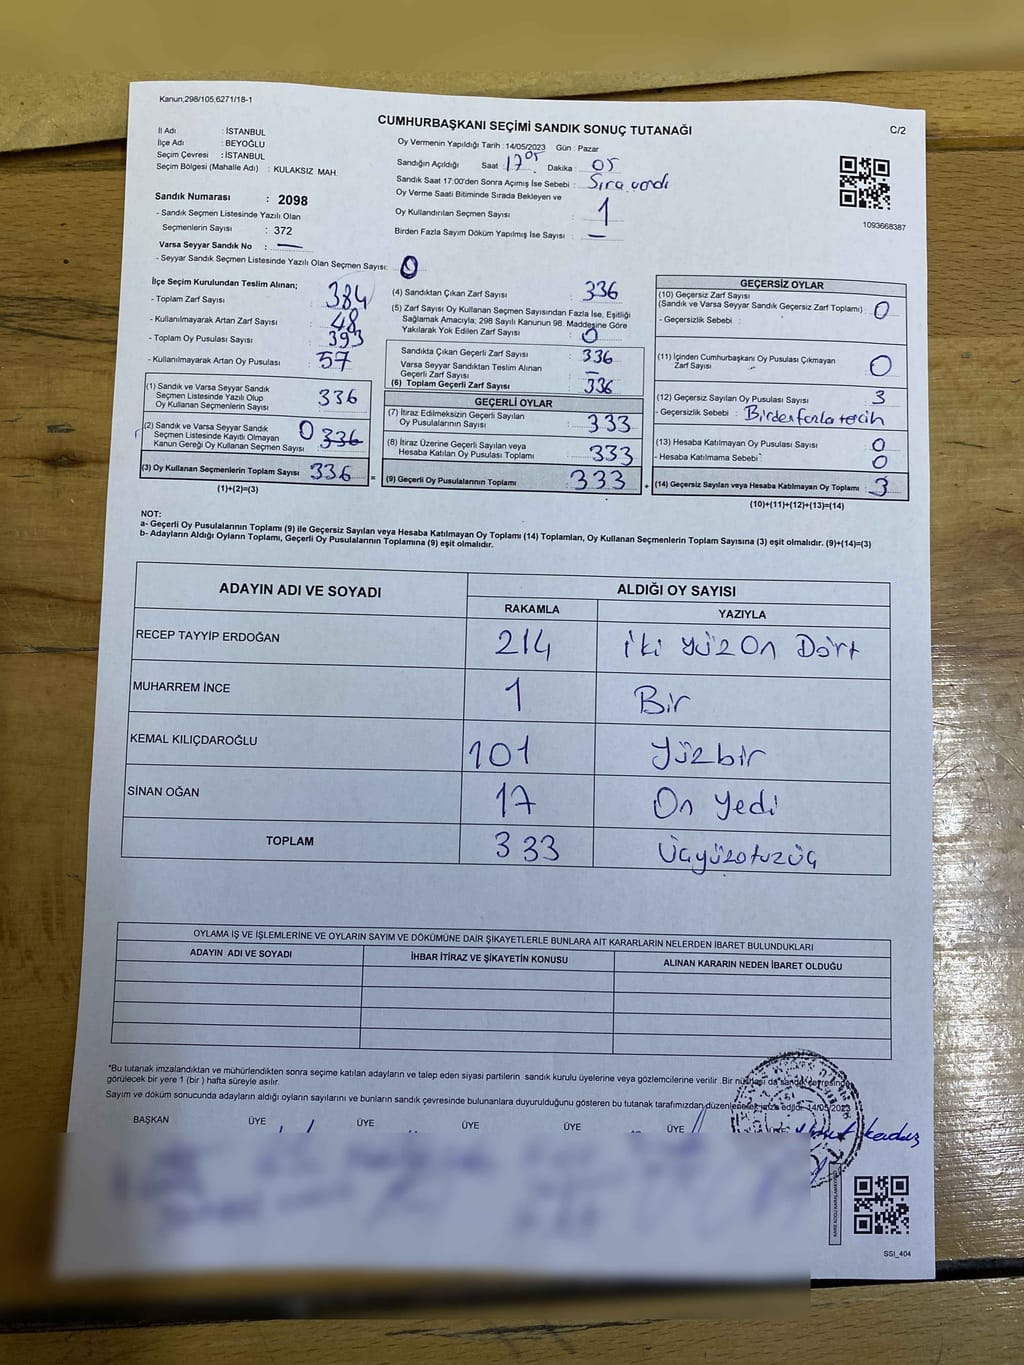 Kanun;298/105;6271/18-1
CUMHURBAŞKANI SEÇİMİ SANDIK SONUÇ TUTANAĞI
C/2
İl Adı : İSTANBUL
İlçe Adı : BEYOĞLU
Seçim Çevresi : İSTANBUL
Seçim Bölgesi (Mahalle Adı) : KULAKSIZ MAH.
Sandık Numarası : 2098
- Sandık Seçmen Listesinde Yazılı Olan
Seçmenlerin Sayısı : 372
Varsa Seyyar Sandık No : —
- Seyyar Sandık Seçmen Listesinde Yazılı Olan Seçmen Sayısı: 0
Oy Vermenin Yapıldığı Tarih : 14/05/2023 Gün : Pazar
Sandığın Açıldığı Saat : 17 05 Dakika : 05
Sandık Saat 17:00'den Sonra Açımış İse Sebebi : Sıra vardı
Oy Verme Saati Bitiminde Sırada Bekleyen ve
Oy Kullandırılan Seçmen Sayısı : 1
Birden Fazla Sayım Döküm Yapılmış İse Sayısı : —
1093668387
İlçe Seçim Kurulundan Teslim Alınan;
- Toplam Zarf Sayısı 384
- Kullanılmayarak Artan Zarf Sayısı 48
- Toplam Oy Pusulası Sayısı 393
- Kullanılmayarak Artan Oy Pusulası 57
(1) Sandık ve Varsa Seyyar Sandık
Seçmen Listesinde Yazılı Olup
Oy Kullanan Seçmenlerin Sayısı 336
(2) Sandık ve Varsa Seyyar Sandık
Seçmen Listesinde Kayıtlı Olmayan
Kanun Gereği Oy Kullanan Seçmen Sayısı 0 336
(3) Oy Kullanan Seçmenlerin Toplam Sayısı 336
(1)+(2)=(3)
=
(4) Sandıktan Çıkan Zarf Sayısı 336
(5) Zarf Sayısı Oy Kullanan Seçmen Sayısından Fazla İse, Eşitliği
Sağlamak Amacıyla; 298 Sayılı Kanunun 98. Maddesine Göre
Yakılarak Yok Edilen Zarf Sayısı 0
Sandıkta Çıkan Geçerli Zarf Sayısı 336
Varsa Seyyar Sandıktan Teslim Alınan
Geçerli Zarf Sayısı —
(6) Toplam Geçerli Zarf Sayısı 336
GEÇERLİ OYLAR
(7) İtiraz Edilmeksizin Geçerli Sayılan
Oy Pusulalarının Sayısı 333
(8) İtiraz Üzerine Geçerli Sayılan veya
Hesaba Katılan Oy Pusulası Toplamı 333
(9) Geçerli Oy Pusulalarının Toplamı 333
+
GEÇERSİZ OYLAR
(10) Geçersiz Zarf Sayısı
(Sandık ve Varsa Seyyar Sandık Geçersiz Zarf Toplamı) : 0
- Geçersizlik Sebebi :
(11) İçinden Cumhurbaşkanı Oy Pusulası Çıkmayan
Zarf Sayısı : 0
(12) Geçersiz Sayılan Oy Pusulası Sayısı : 3
- Geçersizlik Sebebi : Birden fazla tercih
(13) Hesaba Katılmayan Oy Pusulası Sayısı : 0
- Hesaba Katılmama Sebebi : 0
(14) Geçersiz Sayılan veya Hesaba Katılmayan Oy Toplamı : 3
(10)+(11)+(12)+(13)=(14)
NOT:
a- Geçerli Oy Pusulalarının Toplamı (9) ile Geçersiz Sayılan veya Hesaba Katılmayan Oy Toplamı (14) Toplamları, Oy Kullanan Seçmenlerin Toplam Sayısına (3) eşit olmalıdır. (9)+(14)=(3)
b- Adayların Aldığı Oyların Toplamı, Geçerli Oy Pusulalarının Toplamına (9) eşit olmalıdır.
ADAYIN ADI VE SOYADI ALDIĞI OY SAYISI
RAKAMLA YAZIYLA
RECEP TAYYİP ERDOĞAN 214 iki yüz On Dört
MUHARREM İNCE 1 Bir
KEMAL KILIÇDAROĞLU 101 yüzbir
SİNAN OĞAN 17 On yedi
TOPLAM 333 Üçyüzotuzüç
OYLAMA İŞ VE İŞLEMLERİNE VE OYLARIN SAYIM VE DÖKÜMÜNE DAİR ŞİKAYETLERLE BUNLARA AİT KARARLARIN NELERDEN İBARET BULUNDUKLARI
ADAYIN ADI VE SOYADI İHBAR İTİRAZ VE ŞİKAYETİN KONUSU ALINAN KARARIN NEDEN İBARET OLDUĞU
*Bu tutanak imzalandıktan ve mühürlendikten sonra seçime katılan adayların ve talep eden siyasi partilerin sandık kurulu üyelerine veya gözlemcilerine verilir .Bir nüshası da sandık çevresinde
görülecek bir yere 1 (bir ) hafta süreyle asılır.
Sayım ve döküm sonucunda adayların aldığı oyların sayılarını ve bunların sandık çevresinde bulunanlara duyurulduğunu gösteren bu tutanak tarafımızdan düzenlenerek imza edildi. 14/05/2023
BAŞKAN ÜYE ÜYE ÜYE ÜYE ÜYE
SSI_404